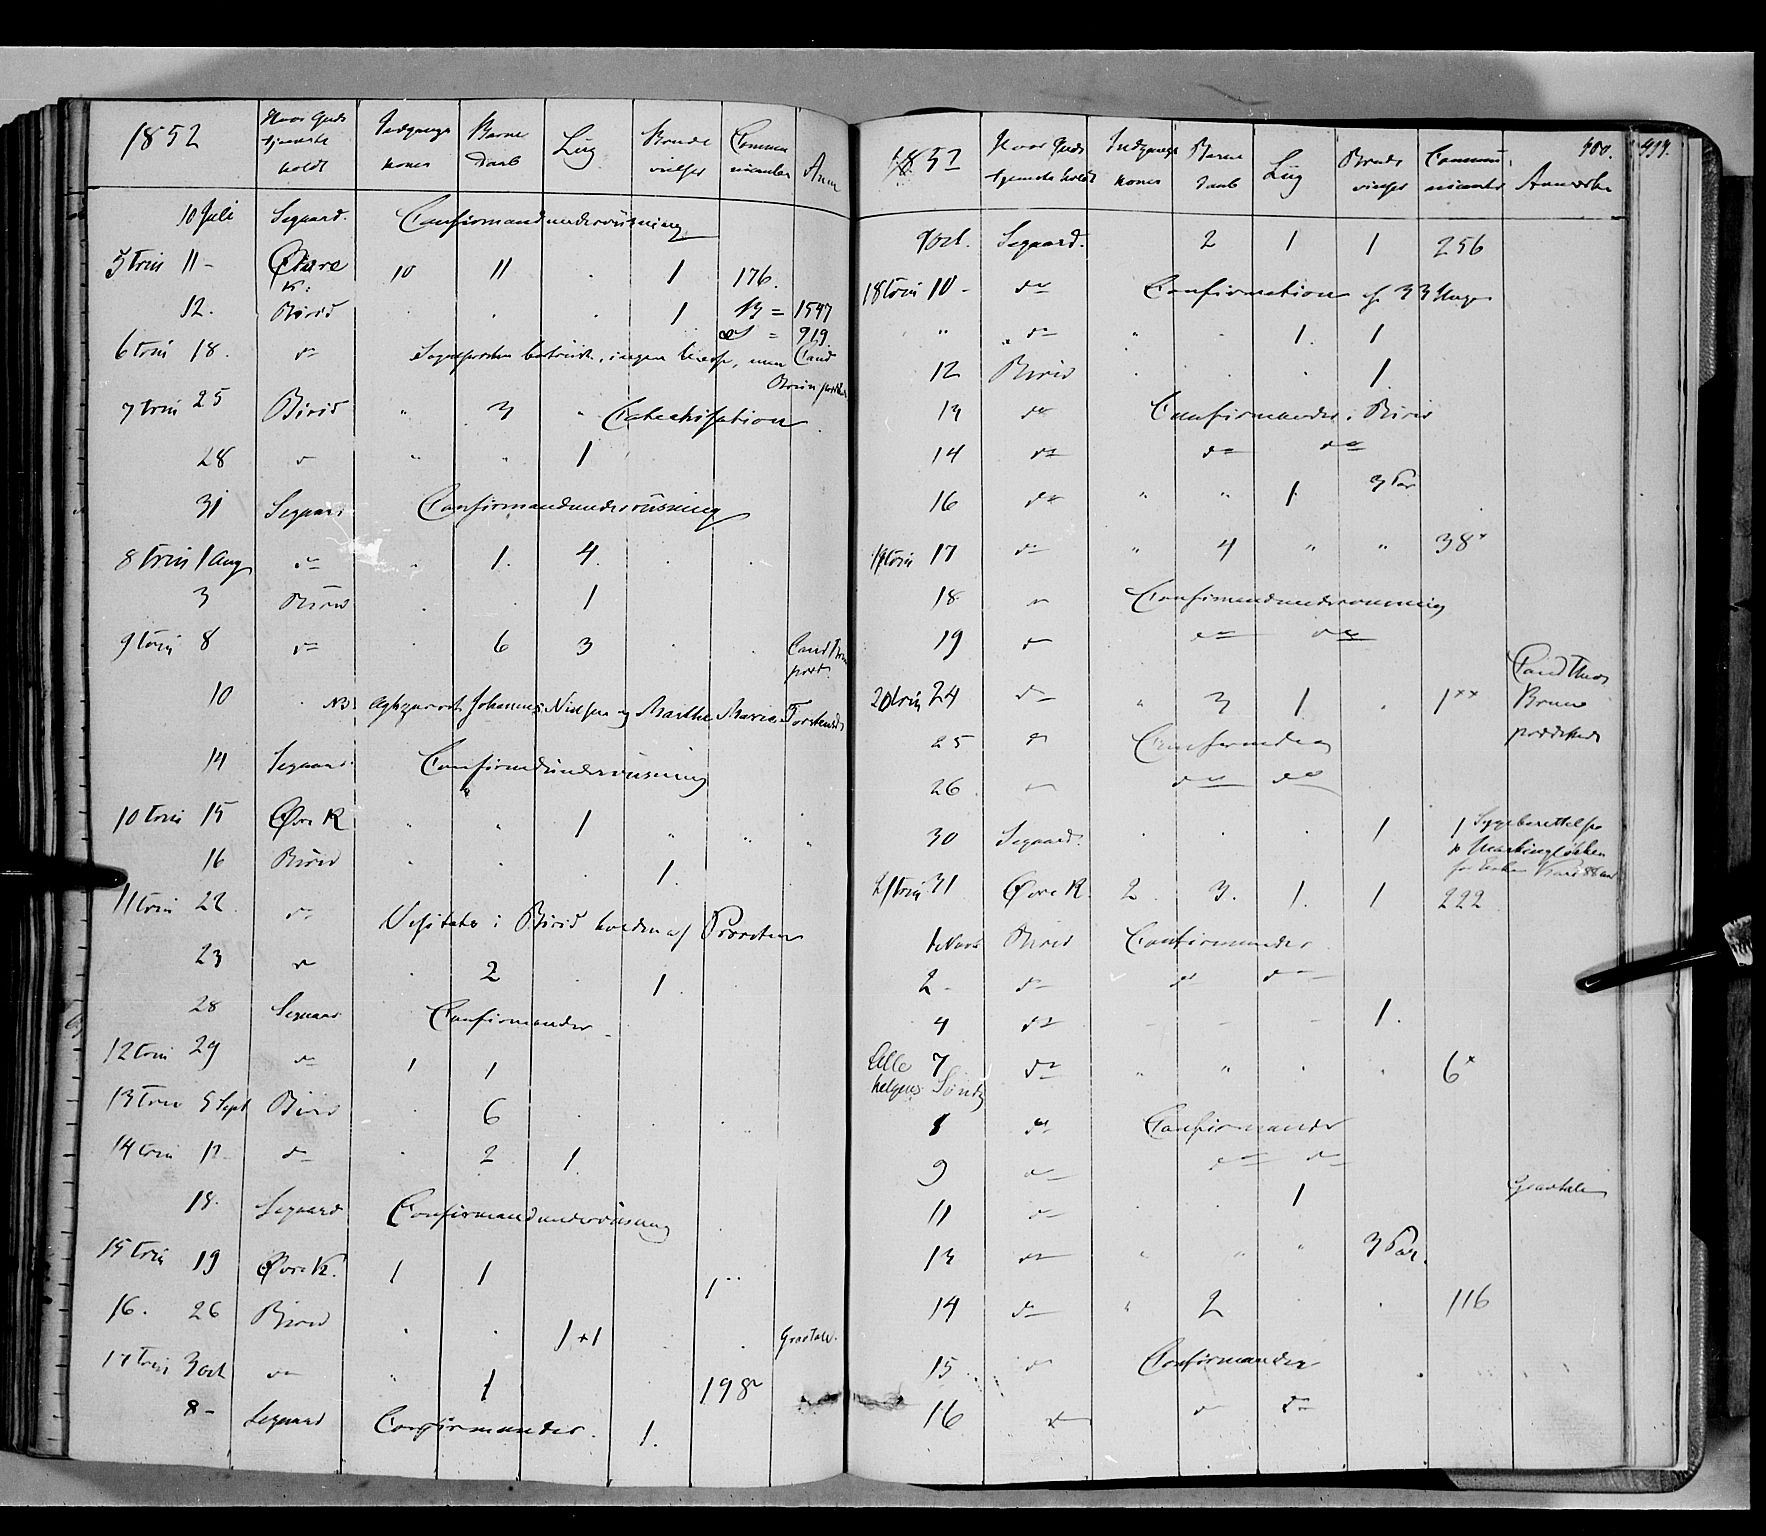 1852 Hvor Guds tjeneste holdt Indgangs koner Barne Daab Liig Brude vielser Commu nicanter Anm
10 Juli Segaard. Confirmandundervüsning
5 Trin 11 - Øvre K: 10 11 . 1 176.
12. Birid . . . 1 B = 1597
S = 919
6 Trin 18. do
Cand
7 Trin 25 Birid " 3 " Catechisation
28 do " " 1
31 Segaard Confirmandundervüsning
8 Trin 1 Aug do . 1. 4. . .
3 Birid . . 1
9 Trin 8 do 6 3 . . Cand
10 . NB Johannes Nielsen og Marthe Maria Torstensd
14 Segaard Confirmdundervüsning
10 Trin 15 Øvre K " " 1 " " "
16 Birid . . . 1.
11 Trin 22. do Visitats i Birid holden af Provsten
23 do . 2 . 1.
28 Segaard Confirmander
12 Trin 29 do 1 1
13 Trin 5 Sept Birid . 6 . . .
14 Trin 12 do . 2 1.
18. Segaard Confirmandundervüsning
15 Trin 19 Øvre K. 1 1 1"
16. 26 Birid . . 1+1 . . Gravtale.
17 Trin 3 Oct do " 1 198
8 - Segaard Confirmander. 1.
1852 Hvor Guds tjeneste holdt Indgangs koner Barne Daab Liig Brude vielser Commu nicanter Anmærkn
400. 499.
9 Oct. Segaard. 2 1 1 256
18 Trin 10 - do Confirmation af 33 Unge
" do " . 1. 1
12 Birid . . . 1
13 do Confirmander i Birid
14 do do do
16 do " " 1. 3 Par
19 Trin 17 do " 4 " " 38*
18 do Confirmandundervüsning
19 do do do
20 Trin 24 do " 3 1 . 1** Cand Theol Bruun prædikede
25 do Confirmander
26 do do do
30 Segaard. . . . 1 1 Sygeberettelse
21 Trin 31 Øvre K. 2. 3. 1. 1 222
1 Novb Birid Confirmander
2 - do do do
4 do - - - 1.
Alle helgens Søndg 7 do " " . . 6*
8 do Confirmander
9 do do do
11 do . . 1 Gravtale
13 do " " " 3 Par.
14 do " 2 . . 116
15 do Confirmander
16 do do do